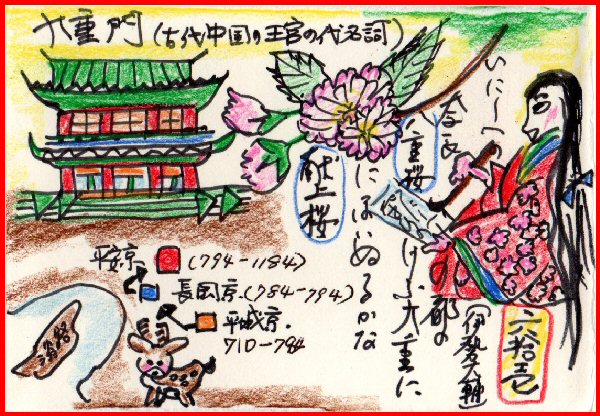 九重門(古代中国の王宮の代名詞)
いにしへの
奈良
の都の
八重桜
けふ九重に
にほいぬるかな
(伊勢大輔)
六拾壱
献上桜
平安京 (794-1184)
長岡京.(784-794)
平城京.
710-784
淡路